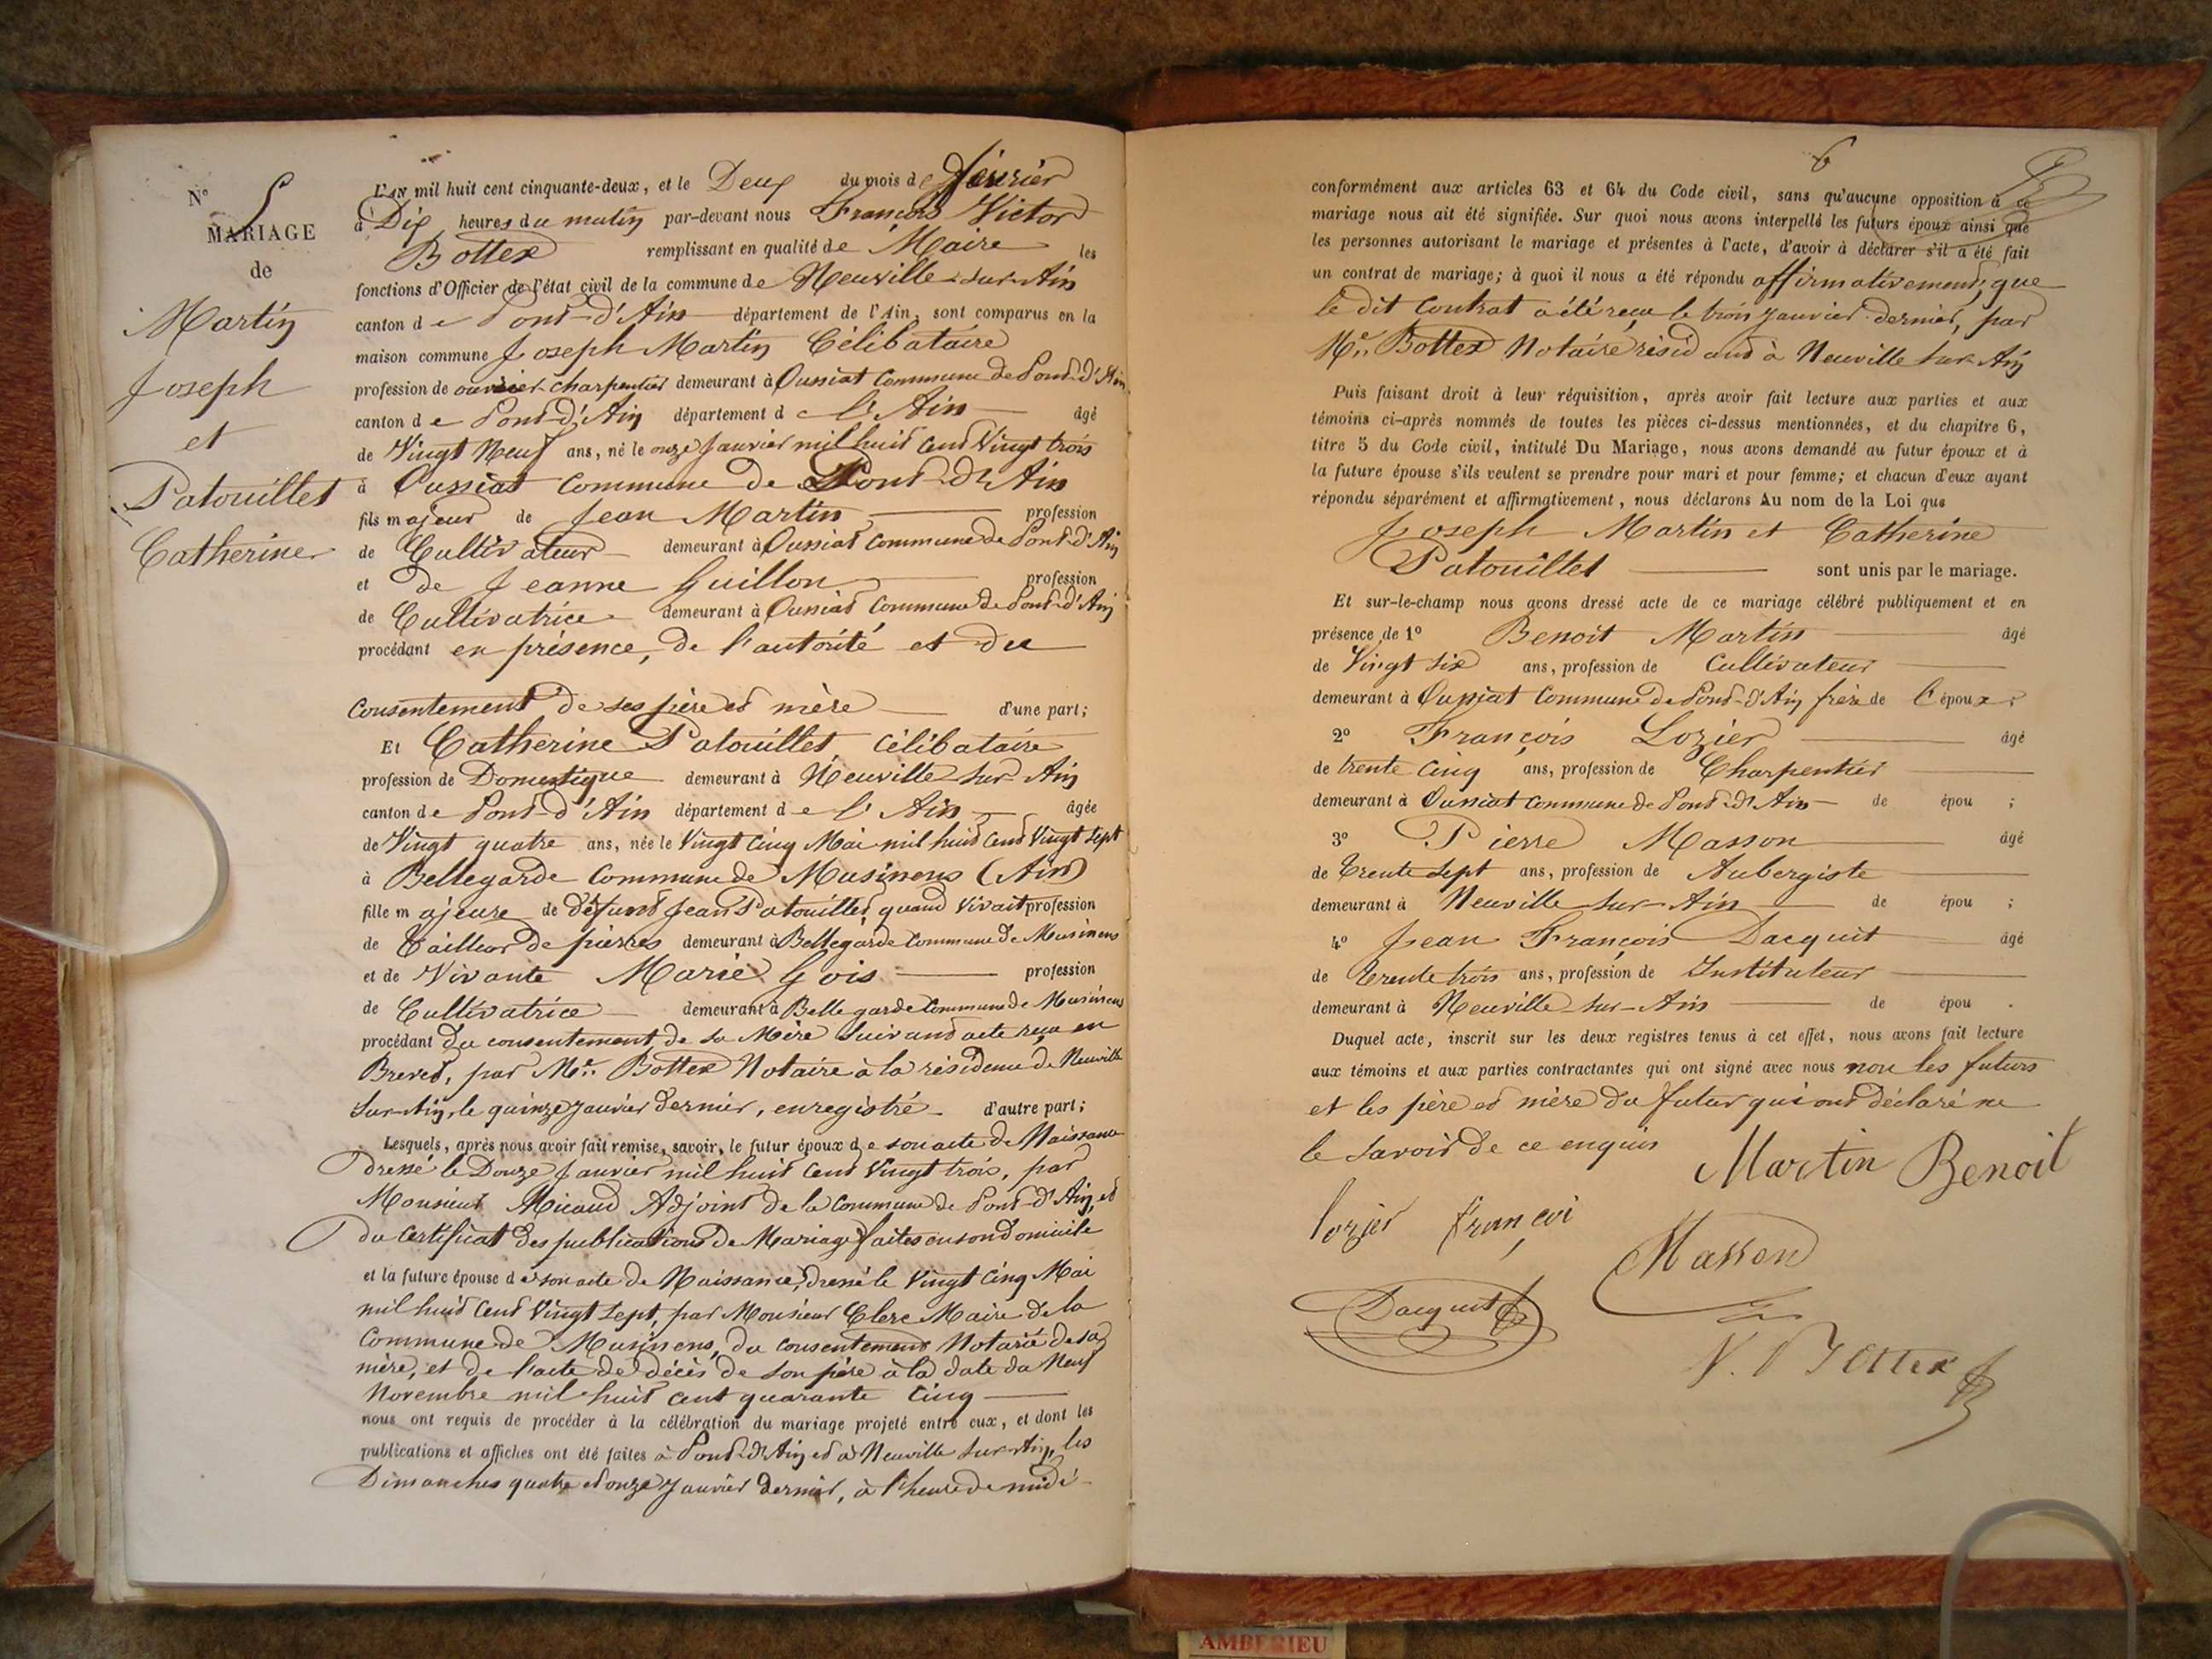 N° 5
MARIAGE
de
Martin
Joseph
et
Patouillet
Catherine
L'AN mil huit cent cinquante-deux, et le Deux du mois de février
à Dix heures du matin par-devant nous François Victor
Bottex remplissant en qualité de Maire les
fonctions d'Officier de l'état civil de la commune de Neuville-sur-Ain
canton de Pont-d'Ain département de l'Ain, sont comparus en la
maison commune Joseph Martin Célibataire
profession de ouvrier charpentier demeurant à Oussiat Commune de Pont-d'Ain
canton de Pont-d'Ain département de l'Ain âgé
de Vingt Neuf ans, né le onze Janvier mil huit Cent Vingt trois
à Oussiat Commune de Pont-d'Ain
fils majeur de Jean Martin profession
de Cultivateur demeurant à Oussiat Commune de Pont-d'Ain
et de Jeanne Guillon profession
de Cultivatrice demeurant à Oussiat Commune de Pont-d'Ain
procédant en présence, de l'autorité et du
Consentement de ses père et mère d'une part;
Et Catherine Patouillet célibataire
profession de Domestique demeurant à Neuville sur Ain
canton de Pont-d'Ain département de l'Ain âgée
de Vingt quatre ans, née le Vingt Cinq Mai mil huit Cent Vingt sept
à Bellegarde Commune de Musinens (Ain)
fille majeure de défunt Jean Patouillet, quand vivait profession
de Tailleur de pierres demeurant à Bellegarde Commune de Musinens
et de Vivante Marie Gois profession
de Cultivatrice demeurant à Bellegarde Commune de Musinens
procédant du consentement de sa Mère suivant acte reçu en
Brevet, par Me. Bottex Notaire à la résidence de Neuville
sur-Ain, le quinze janvier dernier, enregistré d'autre part;
Lesquels, après nous avoir fait remise, savoir, le futur époux de son acte de Naissance
dressé le Douze Janvier mil huit Cent Vingt trois, par
Monsieur Micaud Adjoint de la Commune de Pont-d'Ain, et
du Certificat des publications de Mariage faites en son Domicile
et la future épouse de son acte de Naissance, dressé le Vingt Cinq Mai
mil huit Cent Vingt sept, par Monsieur Clerc Maire de la
Commune de Musinens, du consentement Notarié de sa
mère, et de l'acte de décès de son père à la date du Neuf
Novembre mil huit cent quarante Cinq
nous ont requis de procéder à la célébration du mariage projeté entre eux, et dont les
publications et affiches ont été faites à Pont-d'Ain et à Neuville sur-Ain, les
Dimanches quatre et onze Janvier dernier, à l'heure de midi
6
conformément aux articles 63 et 64 du Code civil, sans qu'aucune opposition à ce
mariage nous ait été signifiée. Sur quoi nous avons interpellé les futurs époux ainsi que
les personnes autorisant le mariage et présentes à l'acte, d'avoir à déclarer s'il a été fait
un contrat de mariage; à quoi il nous a été répondu affirmativement, que
le dit Contrat a été reçu le trois janvier dernier, par
Me. Bottex Notaire résidant à Neuville sur Ain
Puis faisant droit à leur réquisition, après avoir fait lecture aux parties et aux
témoins ci-après nommés de toutes les pièces ci-dessus mentionnées, et du chapitre 6,
titre 5 du Code civil, intitulé Du Mariage, nous avons demandé au futur époux et à
la future épouse s'ils veulent se prendre pour mari et pour femme; et chacun d'eux ayant
répondu séparément et affirmativement, nous déclarons Au nom de la Loi que
Joseph Martin et Catherine
Patouillet sont unis par le mariage.
Et sur-le-champ nous avons dressé acte de ce mariage célébré publiquement et en
présence de 1° Benoit Martin âgé
de Vingt six ans, profession de Cultivateur
demeurant à Oussiat Commune de Pont-d'Ain frère de l'époux;
2° François Lozier âgé
de trente Cinq ans, profession de Charpentier
demeurant à Oussiat Commune de Pont-d'Ain de épou ;
3° Pierre Masson âgé
de Trente sept ans, profession de Aubergiste
demeurant à Neuville sur-Ain de épou ;
4° Jean François Dacquit âgé
de Trente trois ans, profession de Instituteur
demeurant à Neuville-sur-Ain de épou .
Duquel acte, inscrit sur les deux registres tenus à cet effet, nous avons fait lecture
aux témoins et aux parties contractantes qui ont signé avec nous non les futurs
et les père et mère du futur qui ont déclaré ne
le savoir de ce enquis Martin Benoit
lozier françoi
Masson
Dacquit
V. Bottex
AMBERIEU